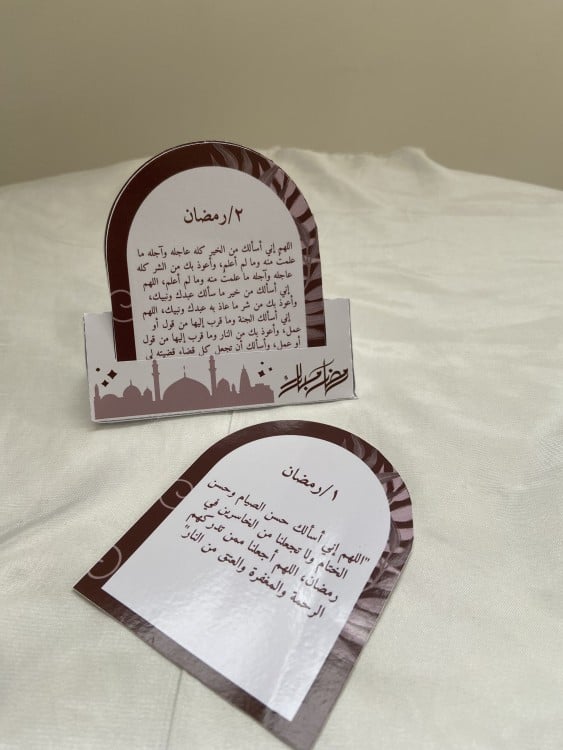 ٢/رمضان
اللهم إني أسألك من الخير كله عاجله وآجله ما
علمت منه وما لم أعلم، وأعوذ بك من الشر كله
عاجله وآجله ما علمت منه وما لم أعلم، اللهم
إني أسألك من خير ما سألك عبدك ونبيك،
وأعوذ بك من شر ما عاذ به عبدك ونبيك، اللهم
إني أسألك الجنة وما قرب إليها من قول أو
عمل، وأعوذ بك من النار وما قرب إليها من قول
أو عمل، وأسألك أن تجعل كل قضاء قضيته لي
رمضان مبارك
١/رمضان
"اللهم إني أسألك حسن الصيام وحسن
الختام ولا تجعلنا من الخاسرين في
رمضان، اللهم أجعلنا ممن تدركهم
الرحمة والمغفرة والعتق من النار"